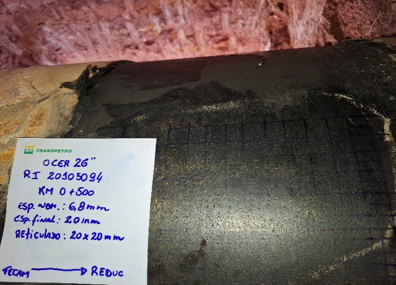 BR TRANSPETRO
OCER 26"
RI 20105094
KM 0+500
ESP. NOM.: 6,8mm
ESP. FINAL: 2,0mm
RETICULADO: 20x20mm
TECAM → REDUC